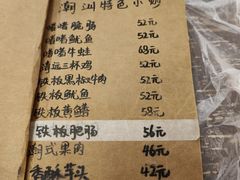 潮汕特色小炒
啫啫脆肠 52元
啫啫鱿鱼 52元
啫啫牛蛙 68元
清远三杯鸡 52元
铁板黑椒牛肉 52元
铁板鱿鱼 52元
铁板黄鳝 58元
铁板肥肠 56元
潮式果肉 46元
香酥芋头 42元